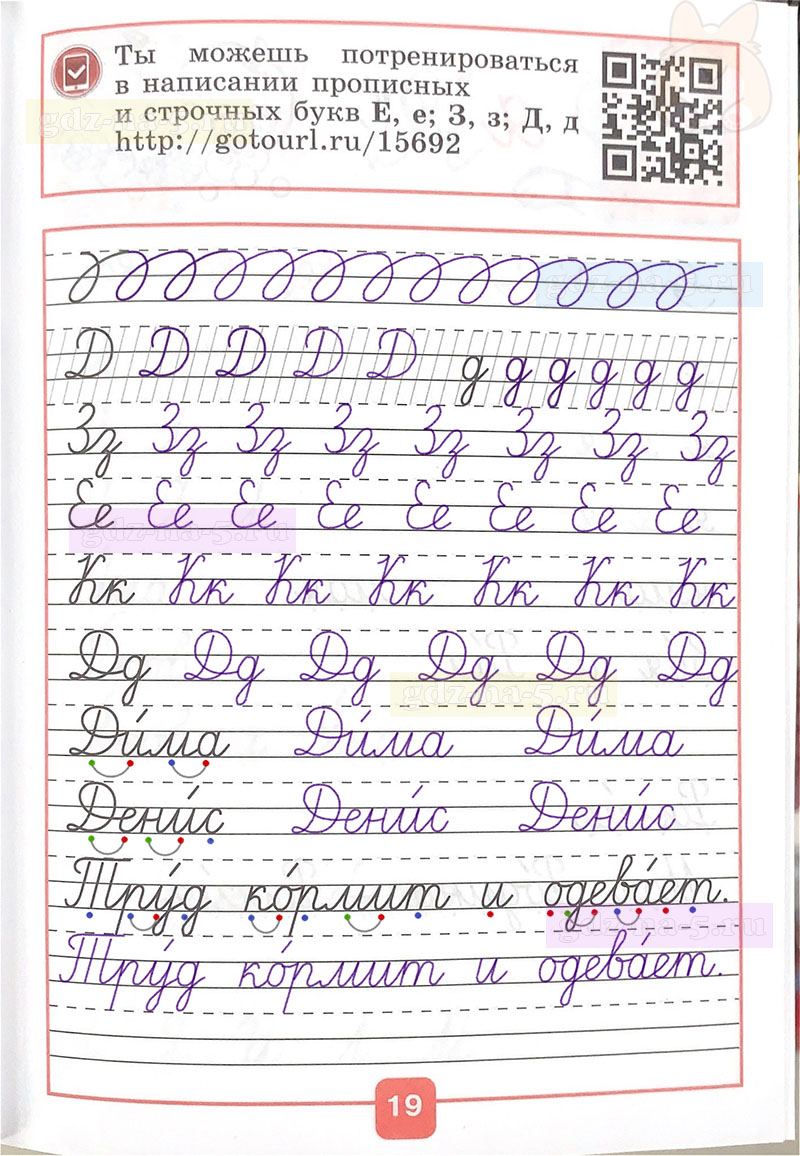 Ты можешь потренироваться
в написании прописных
и строчных букв Е, е; З, з; Д, д
http://gotourl.ru/15692
gdz-na-5.ru
gdz-na-5.ru
Д Д Д Д Д д д д д д д
Зз Зз Зз Зз Зз Зз Зз Зз
Ее Ее Ее Ее Ее Ее Ее Ее
gdz-na-5.ru
Кк Кк Кк Кк Кк Кк Кк
Дд Дд Дд Дд Дд Дд
gdz-na-5.ru
Ди́ма Ди́ма Ди́ма
Дени́с Дени́с Дени́с
Тру́д ко́рмит и одева́ет.
gdz-na-5.ru
Тру́д ко́рмит и одева́ет.
19